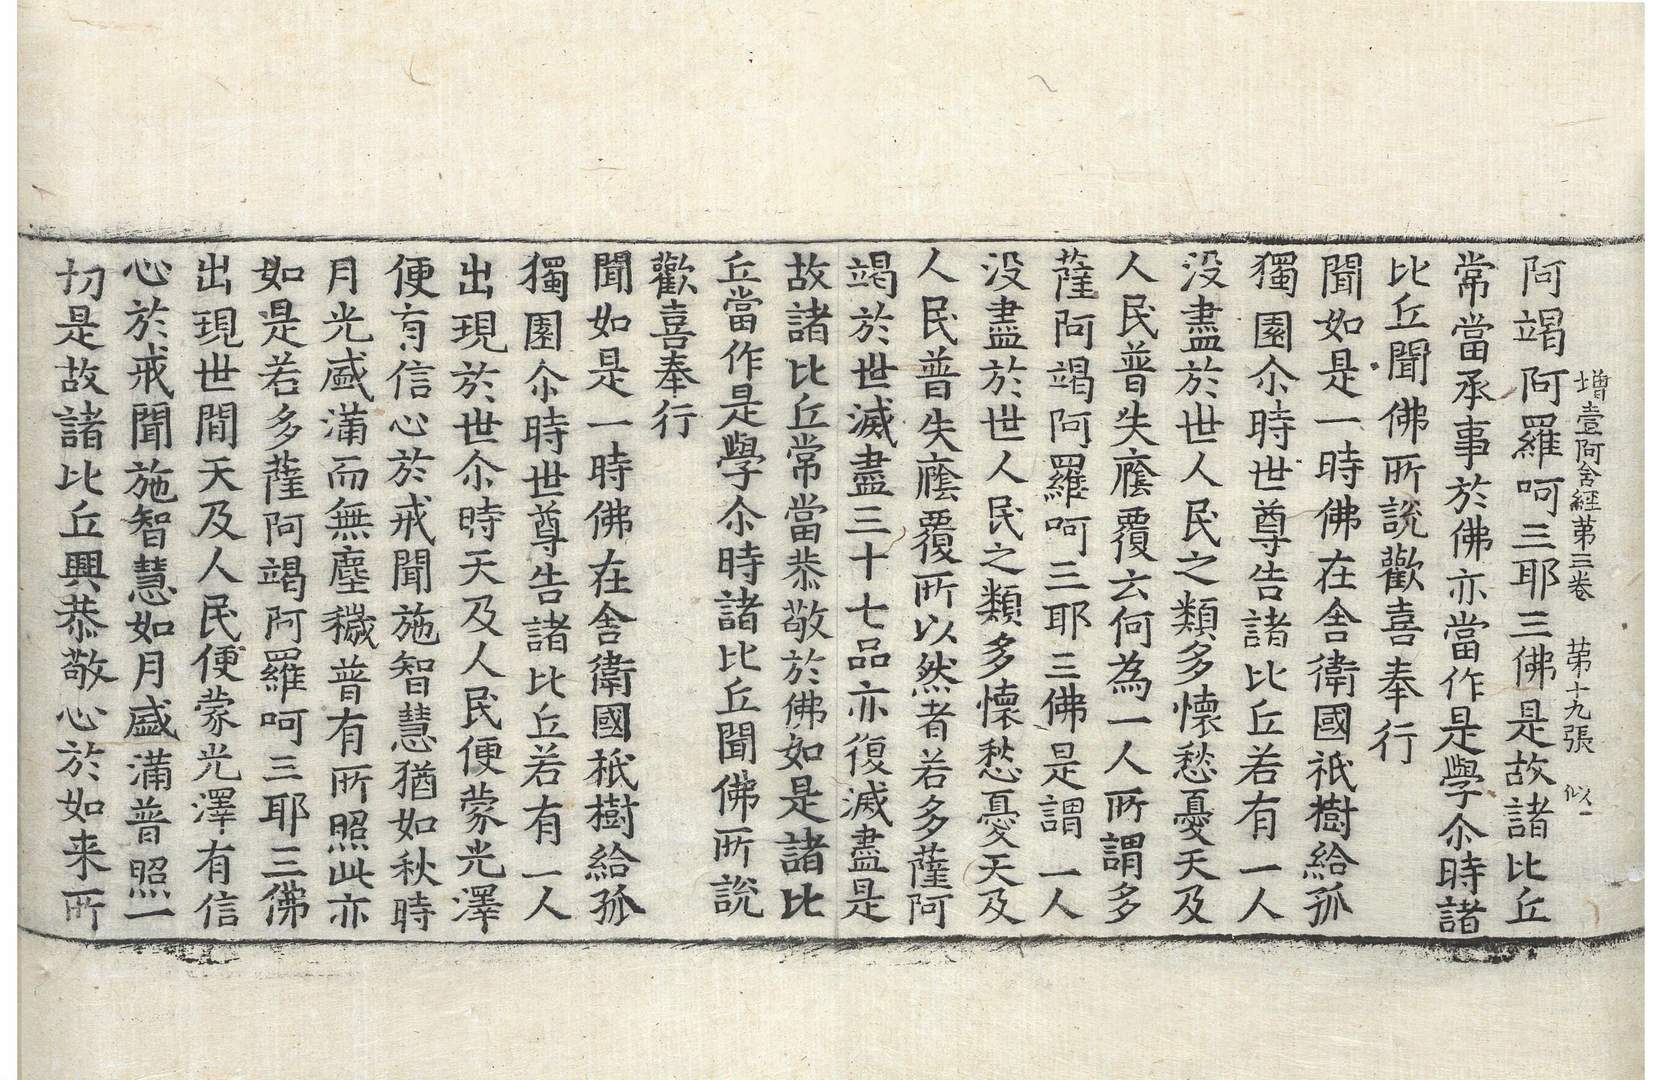 增壹阿含經第三卷 第十九張 似
阿竭阿羅呵三耶三佛是故諸比丘
常當承事於佛亦當作是學尒時諸
比丘聞佛所說歡喜奉行
聞如是一時佛在舍衛國祇樹給孤
獨園尒時世尊告諸比丘若有一人
没盡於世人民之類多懷愁憂天及
人民普失廕覆云何為一人所謂多
薩阿竭阿羅呵三耶三佛是謂一人
没盡於世人民之類多懷愁憂天及
人民普失廕覆所以然者若多薩阿
竭於世滅盡三十七品亦復滅盡是
故諸比丘常當恭敬於佛如是諸比
丘當作是學尒時諸比丘聞佛所說
歡喜奉行
聞如是一時佛在舍衛國祇樹給孤
獨園尒時世尊告諸比丘若有一人
出現於世尒時天及人民便蒙光澤
便有信心於戒聞施智慧猶如秋時
月光盛滿而無塵穢普有所照此亦
如是若多薩阿竭阿羅呵三耶三佛
出現世間天及人民便蒙光澤有信
心於戒聞施智慧如月盛滿普照一
切是故諸比丘興恭敬心於如来所